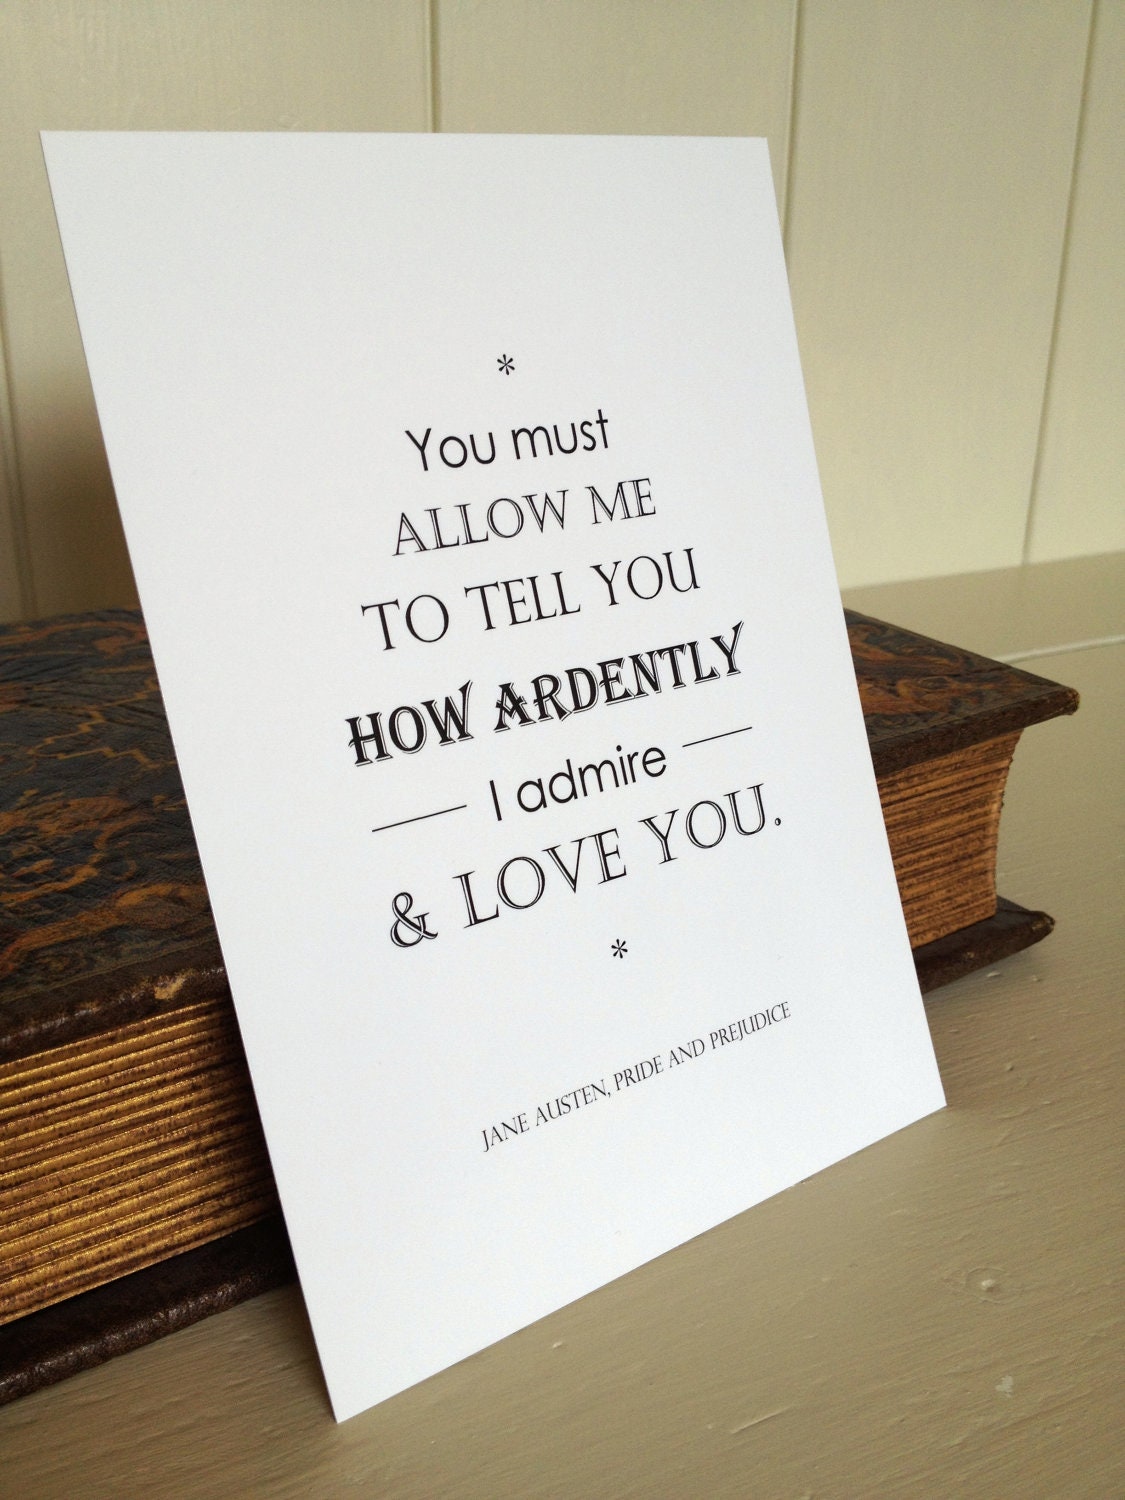 *
You must
ALLOW ME
TO TELL YOU
HOW ARDENTLY
I admire
& LOVE YOU.
*
JANE AUSTEN, PRIDE AND PREJUDICE